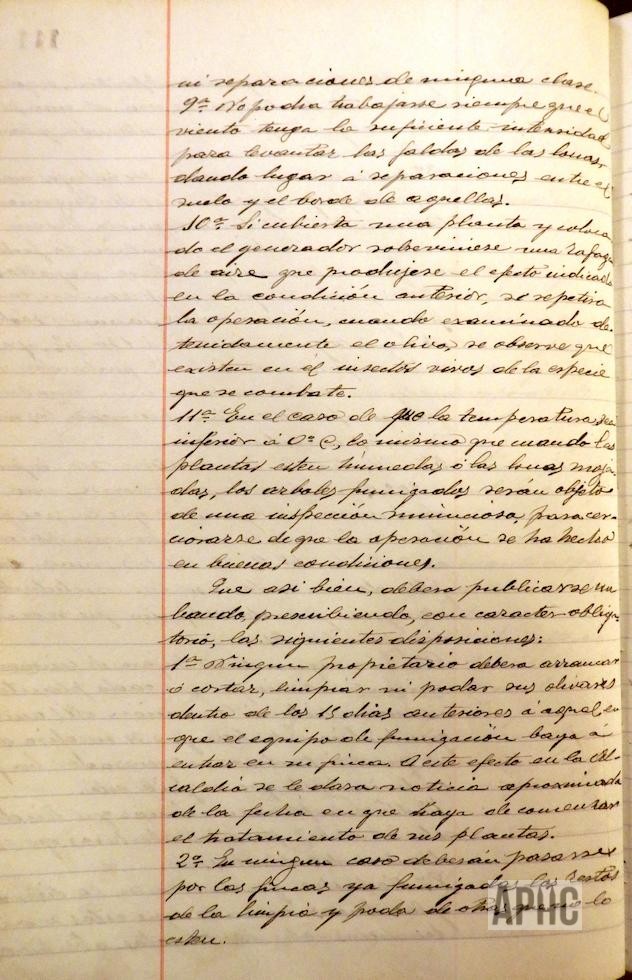 ni separaciones de ninguna clase.
9ª No podra trabajarse siempre que el
viento tenga la suficiente intensidad
para levantar las faldas de las lonas,
dando lugar á separaciones entre el
suelo y el borde de aquellas.
10ª Si cubierta una planta y coloca-
do el generador sobreviniese una rafaga
de aire que produjese el efecto indicado
en la condición anterior, se repetira
la operación, cuando examinado de-
tenidamente el olivo, se observe que
existen en él insectos vivos de la especie
que se combate.
11ª En el caso de que la temperatura sea
inferior á 0º C, lo mismo que cuando las
plantas esten húmedas ó las lonas moja-
das, los arboles fumigados serán objeto
de una inspección minuciosa, para cer-
ciorarse de que la operación se ha hecho
en buenas condiciones.
Que asi bien, debera publicarse un
bando, prescribiendo, con caracter obliga-
torio, las siguientes disposiciones:
1ª Ningun propietario debera arrancar
ó cortar, limpiar ni podar sus olivares
dentro de los 15 dias anteriores á aquel en
que el equipo de fumigación baya á
entrar en su finca. A este efecto en la Al-
caldia se le dara noticia aproximada
de la fecha en que haya de comenzar
el tratamiento de sus plantas.
2ª En ningun caso deberán pasarse
por las fincas ya fumigadas los restos
de la limpia y poda de otras que no lo
esten.
APHC